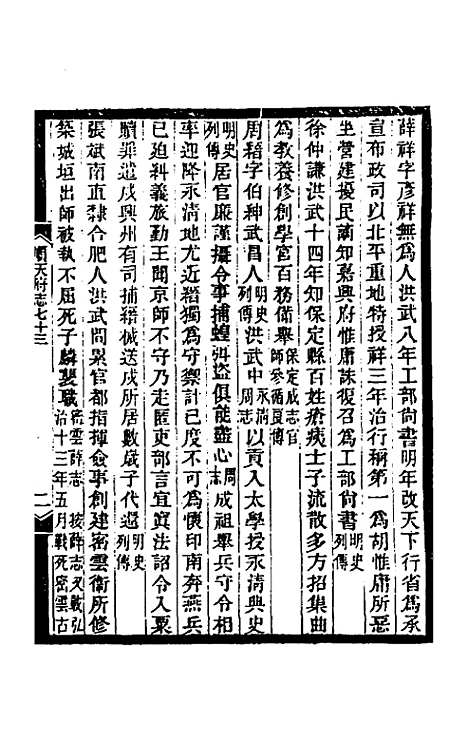 薛祥字彥祥無爲人洪武八年工部尚書明年改天下行省爲承
宣布政司以北平重地特授祥三年治行稱第一爲胡惟庸所惡
坐營建擾民謫知嘉興府惟庸誅復召爲工部尚書明史列傳
徐仲謙洪武十四年知保定縣百姓瘡痍士子流散多方招集曲
爲教養修創學宮百務備舉保定成志官師參循夏傳
周縉字伯紳武昌人明史列傳洪武中永清周志以貢入太學授永清典史
明史列傳居官廉謹攝令事捕蝗弭盜俱能盡心周志成祖舉兵守令相
率迎降永清地尤近縉獨爲守禦計已度不可爲懷印南奔燕兵
已迫糾義旅勤王聞京師不守乃走匿吏部言宜寘法詔令入粟
贖罪遣戍興州有司捕縉械送戍所居數歲子代還明史列傳
張斌南直隸合肥人洪武間累官都指揮僉事創建密雲衛所修
築城垣出師被執不屈死子麟襲職密雲薛志 按薛志又載弘治十三年五月戰死密雲古
順天府志七十三